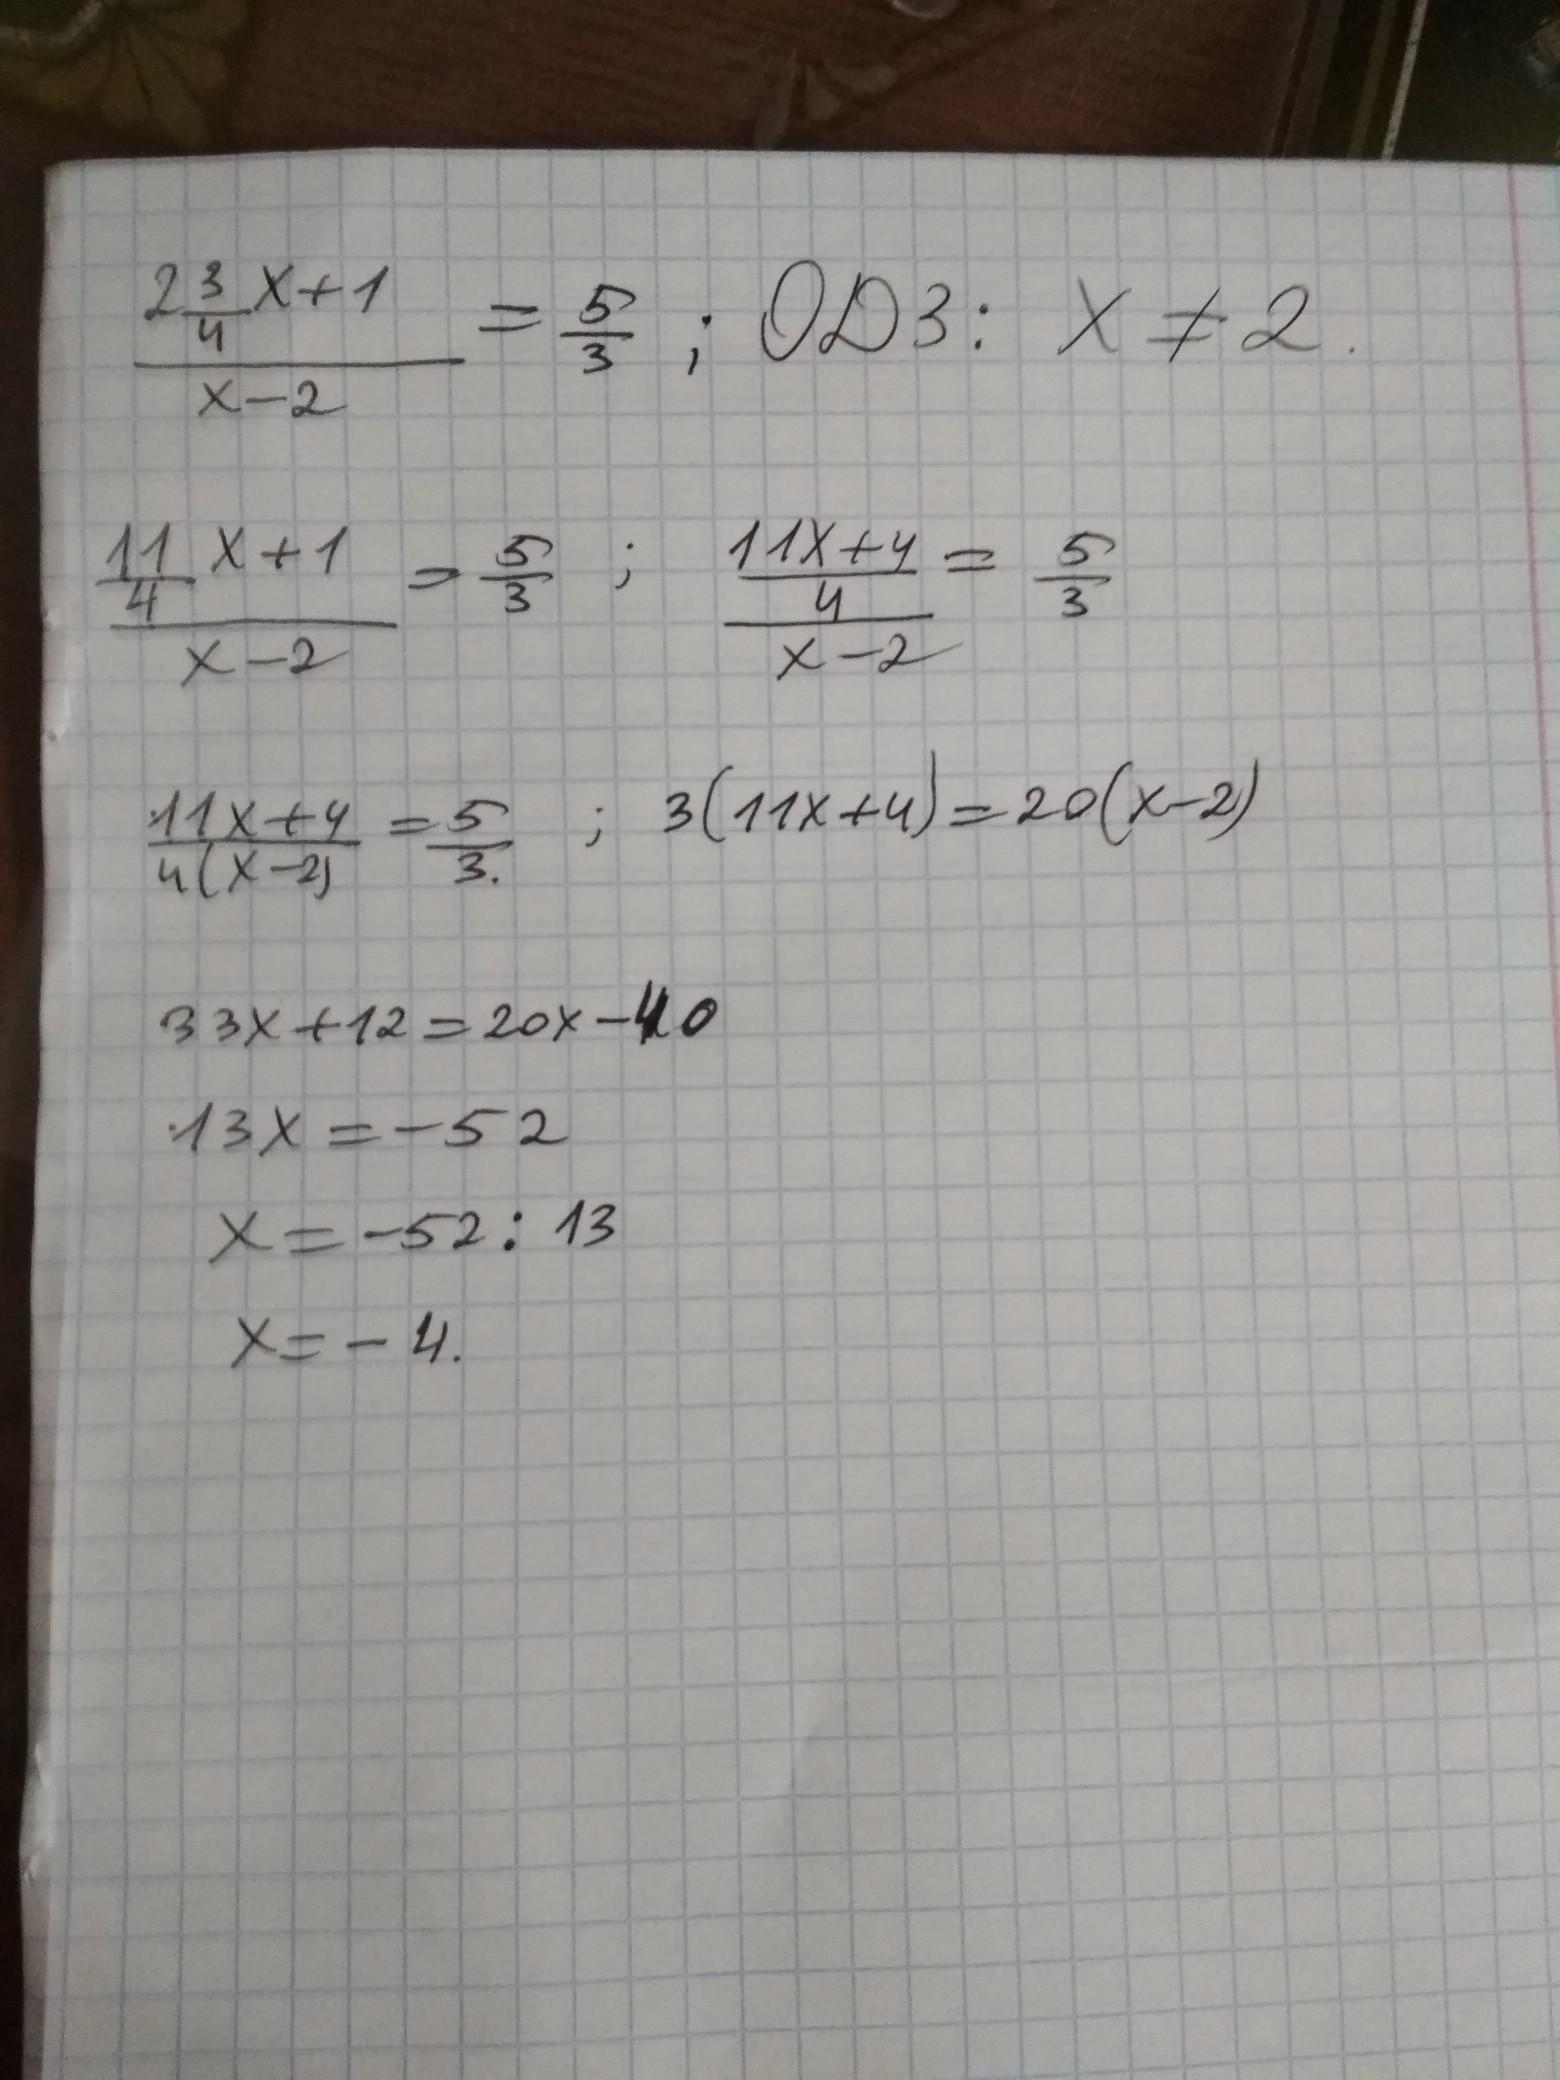 (2 3/4 x+1)/(x-2) = 5/3 ; ОДЗ: x ≠ 2.
(11/4 x+1)/(x-2) = 5/3 ; ((11x+4)/4)/(x-2) = 5/3
(11x+4)/(4(x-2)) = 5/3. ; 3(11x+4)=20(x-2)
33x+12=20x-40
13x=-52
x=-52:13
x=-4.